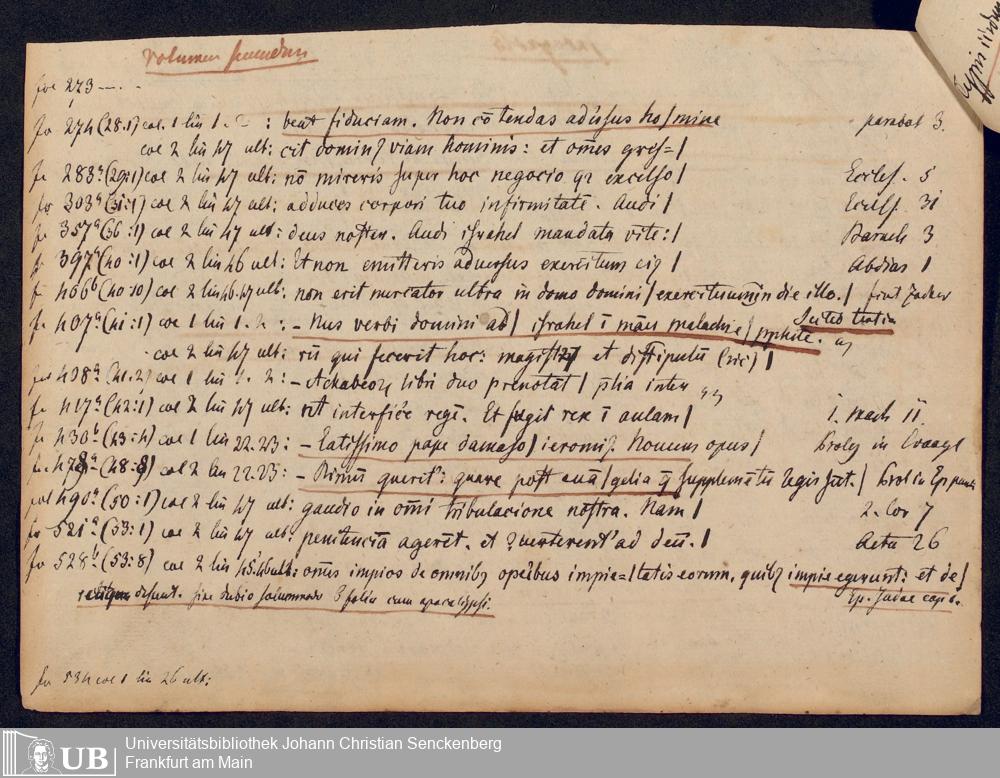 volumen secundum
fol 273 — . .
fo 274 (28.1) col. 1 lin 1. 2 : beat fiduciam. Non cõtendas adũsus ho/mine parabol 3.
col 2 lin 47 ult: cit dominꝰ viam hominis: et oms gres=/
fo 283ᵃ (29:1) col 2 lin 47 ult: nõ mireris super hoc negocio qꝛ excelso / Eccles. 5
fo 303ᵃ (31:1) col 2 lin 47 ult: adduces corpori tuo infirmitatẽ. Audi / Eccls. 31
fo 357ᵃ (36:1) col 2 lin 47 ult: deus noster. Audi israhel mandata vite: / Baruch 3
fo 397ᵃ (40:1) col 2 lin 46 ult: Et non emitteris adversus exercitum eiꝰ / Abdias 1
fo 406ᵇ (40:10) col 2 lin 46.47 ult: non erit mercator ultra in domo domini / exercituum in die illo. /
fo 407ᵃ (41:1) col 1 lin 1. 2 : – Nus verbi domini ad / israhel ĩ mãu malachie / pphete.
col 2 lin 47 ult: rũ qui fecerit hoc: magistꝝ et discipulũ (sic) /
408ᵃ (41.2) col 1 lin 1. 2 : – Machabeoꝝ libri duo prenotãt / p̃lia inter
fo 417ᵃ (42:1) col 2 lin 47 ult: rẽt interficẽ regẽ. Et fugit rex ĩ aulam / 1. Mach 11
fo 430ᵇ (43:4) col 1 lin 22.23: – Eatissimo pape damaso / ieronimꝰ. Novum opus / Prolog in Evangl
(48:9) col 2 lin 22.23: – Rimũ querit: quare post euã/gelia q̃ supplemẽtũ legis sut. /
fol 490ᵃ (50:1) col 2 lin 47 ult: gaudio in omni tribulacione nostra. Nam / 2. Cor 7
fo 521ᵃ (53:1) col 2 lin 47 ult: penitenciã agerẽt. et ꝯverterentʳ ad deũ. / Actu 26
fo 528ᵇ (53:8) col 2 lin 45.46 ult: omnes impios de omnibꝰ operibus impie=/tatis eorum, quibꝰ impie egerunt: et de /
reliqua desunt. sine dubio solummodo 8 folia cum apocalypsi. Ep. Judae
fo 534 col 1 lin 26 ult:
UB Universitätsbibliothek Johann Christian Senckenberg
Frankfurt am Main